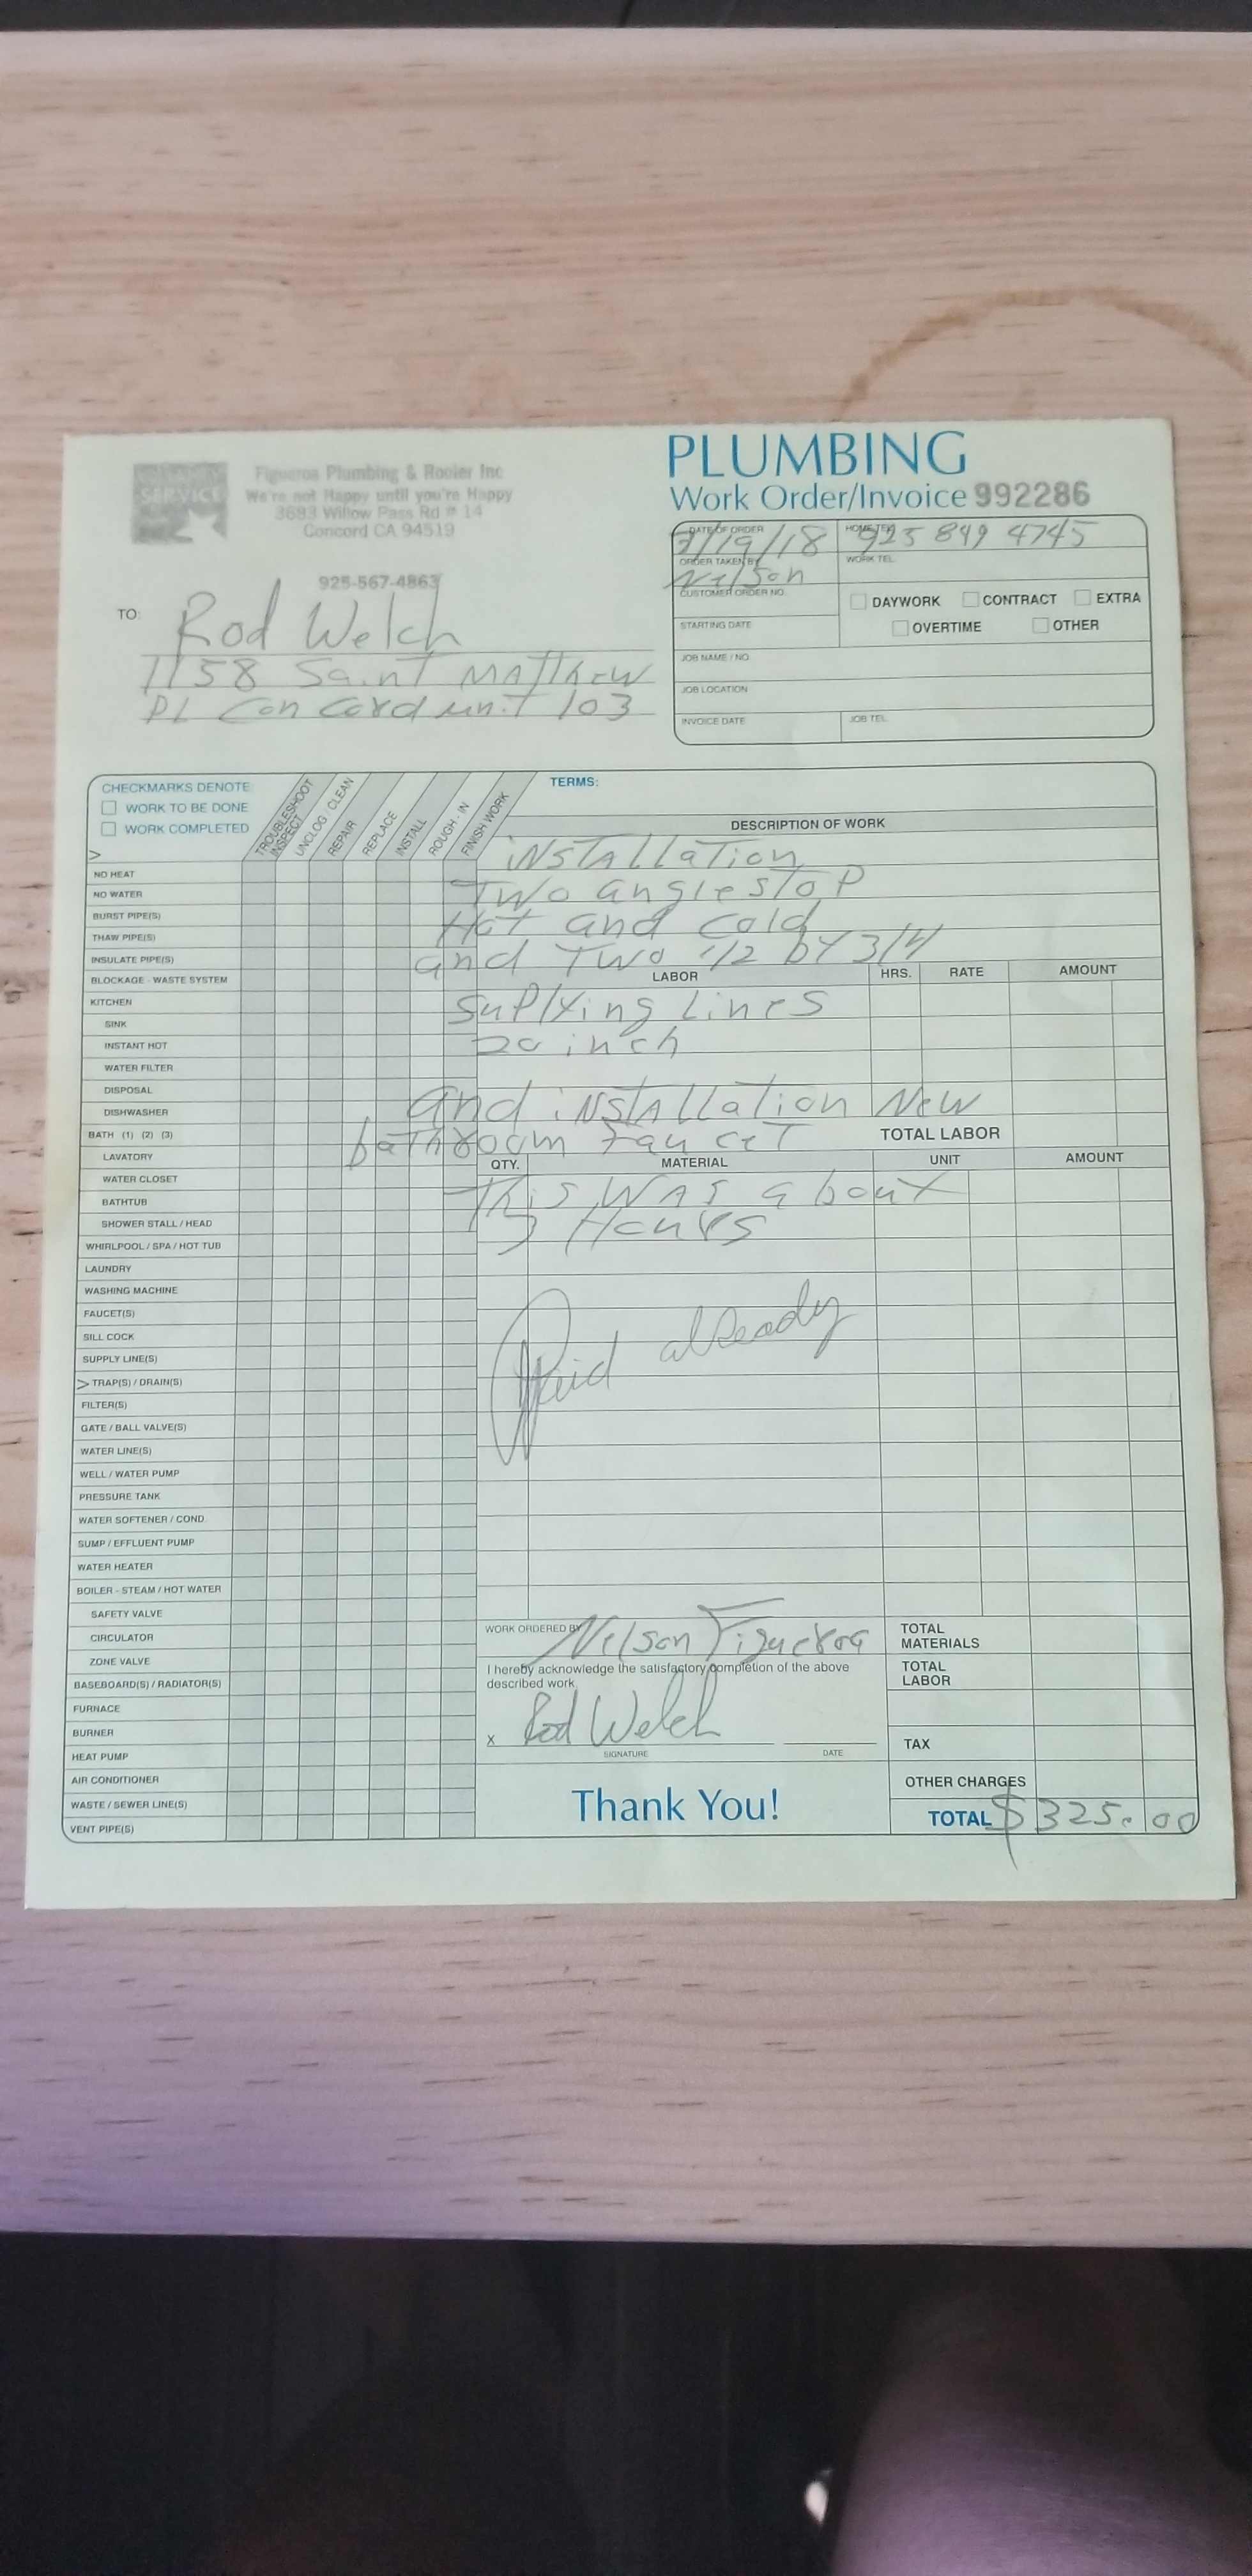 SERVICE
Figueroa Plumbing & Rooter Inc
We're not Happy until you're Happy
3683 Willow Pass Rd # 14
Concord CA 94519
925-567-4863
PLUMBING
Work Order/Invoice 992286
DATE OF ORDER
/19/18
HOME TEL.
925 849 4745
ORDER TAKEN BY
Nelson
WORK TEL.
CUSTOMER ORDER NO.
DAYWORK CONTRACT EXTRA
STARTING DATE
OVERTIME OTHER
JOB NAME / NO.
JOB LOCATION
INVOICE DATE
JOB TEL.
TO:
Rod Welch
1158 Saint MATThew
PL Concord unit 103
CHECKMARKS DENOTE:
WORK TO BE DONE
WORK COMPLETED
TROUBLESHOOT INSPECT
UNCLOG - CLEAN
REPAIR
REPLACE
INSTALL
ROUGH - IN
FINISH WORK
NO HEAT
NO WATER
BURST PIPE(S)
THAW PIPE(S)
INSULATE PIPE(S)
BLOCKAGE - WASTE SYSTEM
KITCHEN
SINK
INSTANT HOT
WATER FILTER
DISPOSAL
DISHWASHER
BATH (1) (2) (3)
LAVATORY
WATER CLOSET
BATHTUB
SHOWER STALL / HEAD
WHIRLPOOL / SPA / HOT TUB
LAUNDRY
WASHING MACHINE
FAUCET(S)
SILL COCK
SUPPLY LINE(S)
> TRAP(S) / DRAIN(S)
FILTER(S)
GATE / BALL VALVE(S)
WATER LINE(S)
WELL / WATER PUMP
PRESSURE TANK
WATER SOFTENER / COND.
SUMP / EFFLUENT PUMP
WATER HEATER
BOILER - STEAM / HOT WATER
SAFETY VALVE
CIRCULATOR
ZONE VALVE
BASEBOARD(S) / RADIATOR(S)
FURNACE
BURNER
HEAT PUMP
AIR CONDITIONER
WASTE / SEWER LINE(S)
VENT PIPE(S)
TERMS:
DESCRIPTION OF WORK
iNSTAllaTion
Two anglestoP
Hot and cold
and Two 1/2 by 3/4
LABOR HRS. RATE AMOUNT
SuPlying Lines
20 inch
and iNSTAllation New
bathroom Faucet
TOTAL LABOR
QTY. MATERIAL UNIT AMOUNT
This WAS about
Hours
Paid already
WORK ORDERED BY
Nelson Figueroa
I hereby acknowledge the satisfactory completion of the above
described work.
X Rod Welch
SIGNATURE DATE
Thank You!
TOTAL MATERIALS
TOTAL LABOR
TAX
OTHER CHARGES
TOTAL $325.00